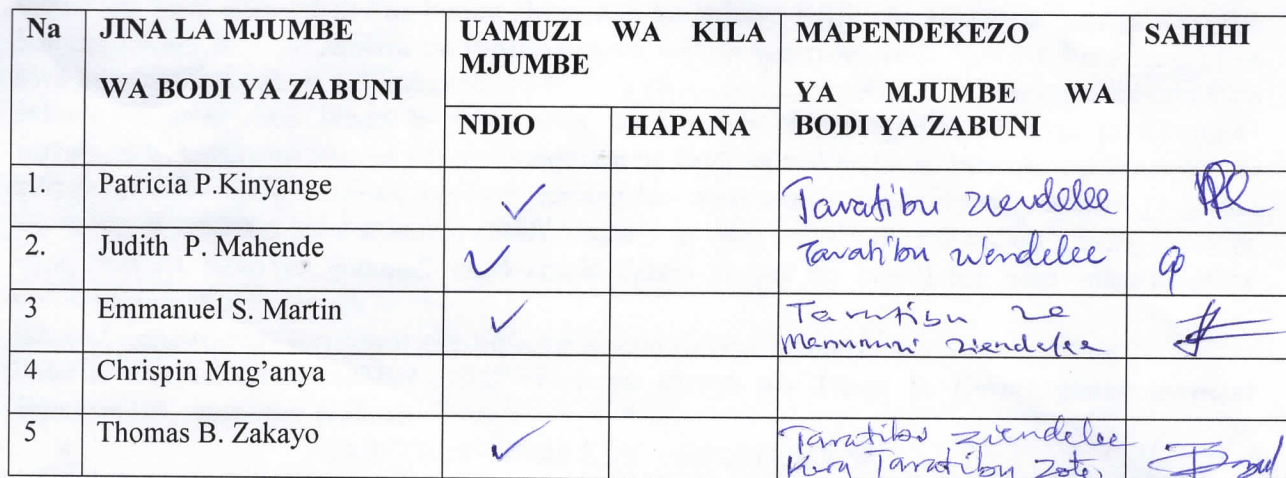 Na JINA LA MJUMBE WA BODI YA ZABUNI UAMUZI WA KILA MJUMBE MAPENDEKEZO YA MJUMBE WA BODI YA ZABUNI SAHIHI
NDIO HAPANA
1. Patricia P.Kinyange ✓ Taratibu ziendelee
2. Judith P. Mahende ✓ Taratibu ziendelee
3 Emmanuel S. Martin ✓ Taratibu za
Manunuzi ziendelee
4 Chrispin Mng'anya
5 Thomas B. Zakayo ✓ Taratibu ziendelee
Kwa Taratibu zote.